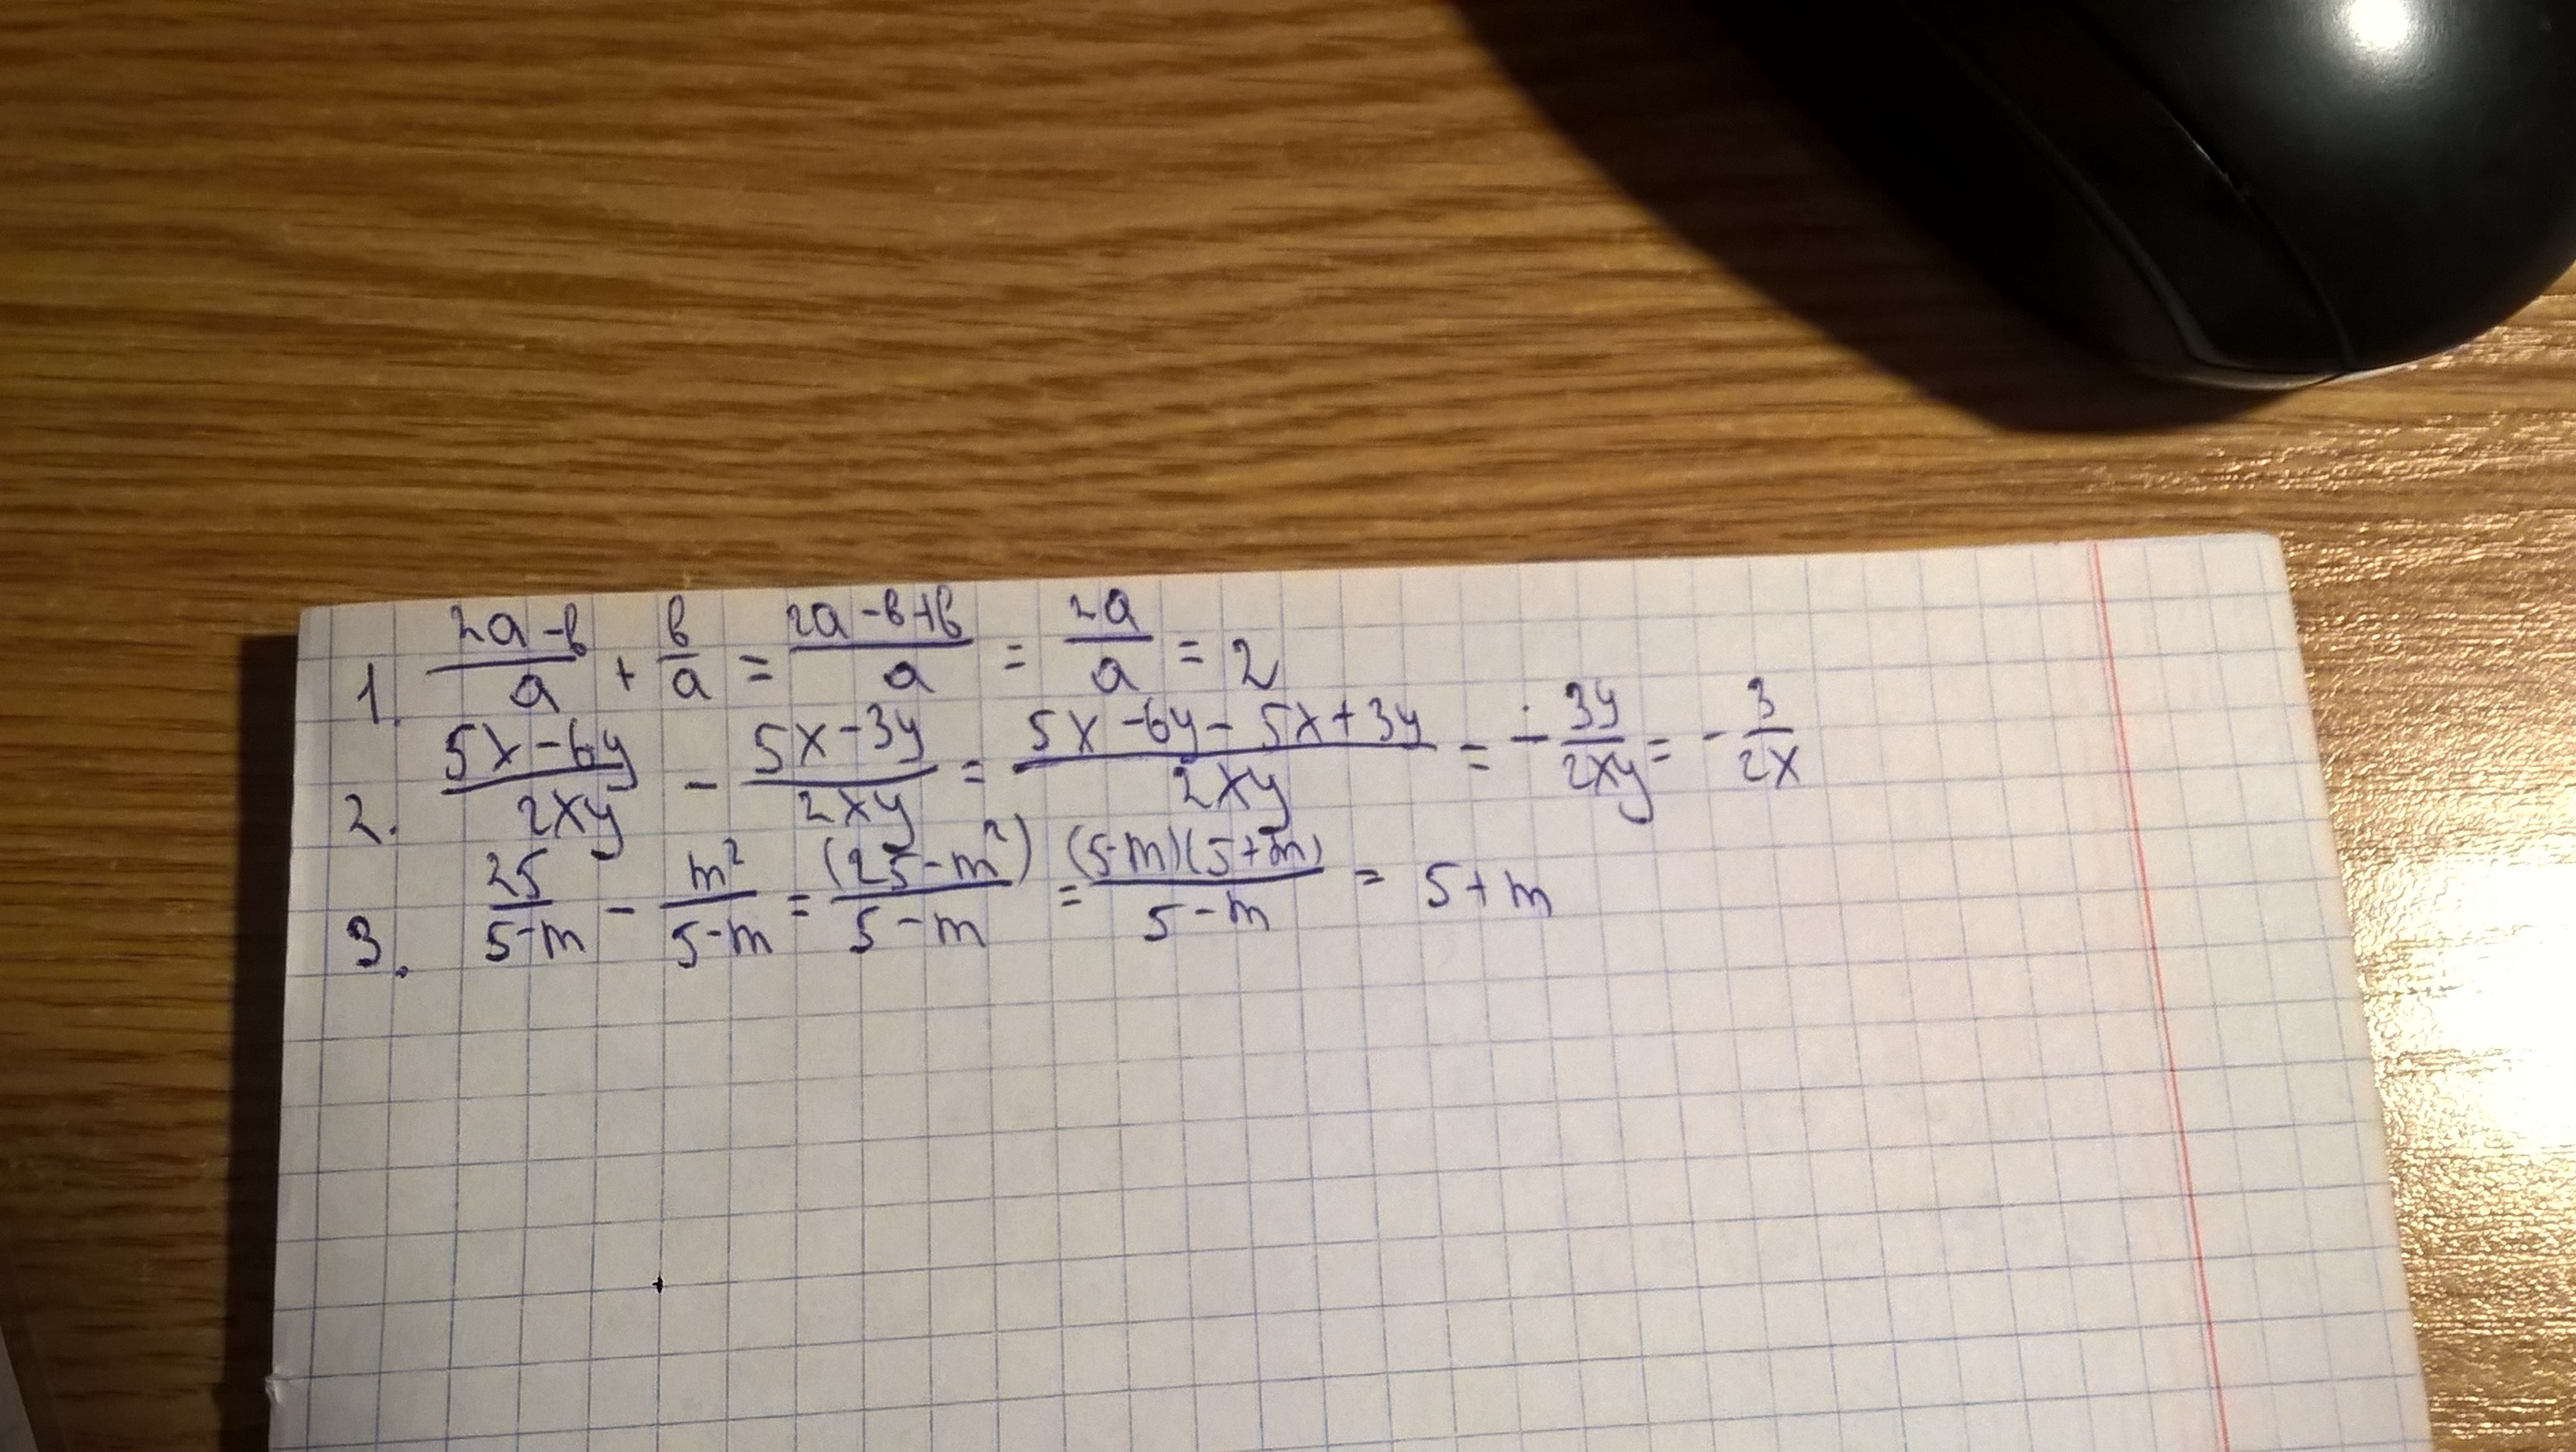 1. (2a-b)/a + b/a = (2a-b+b)/a = 2a/a = 2
2. (5x-6y)/(2xy) - (5x-3y)/(2xy) = (5x-6y-5x+3y)/(2xy) = -3y/(2xy) = -3/(2x)
3. 25/(5-m) - m²/(5-m) = (25-m²)/(5-m) = (5-m)(5+m)/(5-m) = 5+m